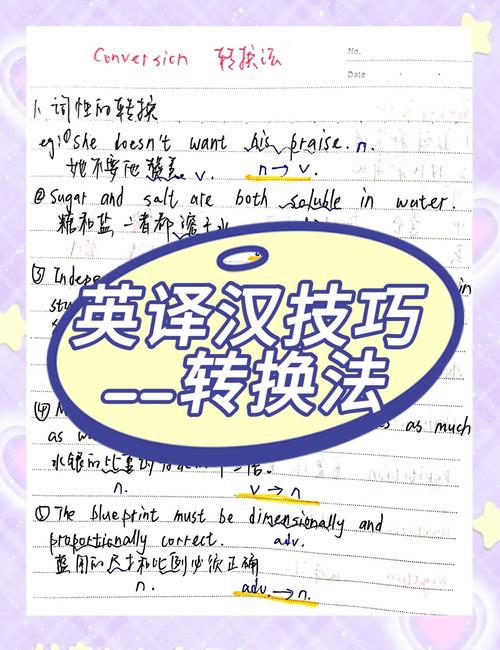 Conversion 转换法
No.
Date
1. 词性的转换
eg: ① She doesn't want his praise. n.
她不要他 v. n → v.
② Sugar and salt are both soluble in water.
糖和盐二者都溶于水
③ Indepe in
stu
英译汉技巧
——转换法
④ M as much
as w
水银的比重
n. v → n
⑤ The blueprint must be dimensionally and
proportionally correct. adv.
蓝图的尺寸和比例必须正确
n. adv. → n.